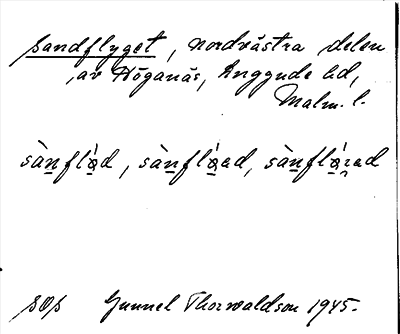 sandflyget, nordvästra delen
av Höganäs, Luggude hd,
Malm. l.
sànflǻd, sànflǻad, sànflǻrad
sOp Gunnel Thorwaldson 1945.